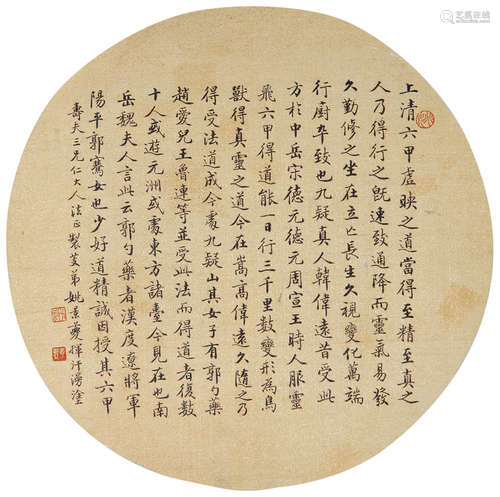 艺狐在线
上清六甲虛映之道當得至精至真之
人乃得行之既速致通降而靈氣易發
久勤修之坐在立亡長生久視變化萬端
行廚卒致也九疑真人韓偉遠昔受此
方於中岳宋德元德元周宣王時人服靈
飛六甲得道能一日行三千里數變形為鳥
獸得真靈之道今在嵩高偉遠久隨之乃
得受法道成今處九疑山其女子有郭勺藥
趙愛兒王魯連等並受此法而得道者復數
十人或遊元洲或處東方諸臺今見在也南
岳魏夫人言此云郭勺藥者漢度遼將軍
陽平郭騫女也少好道精誠因授其六甲
壽夫三兄仁大人法正製弟姚景夔揮汗漫塗